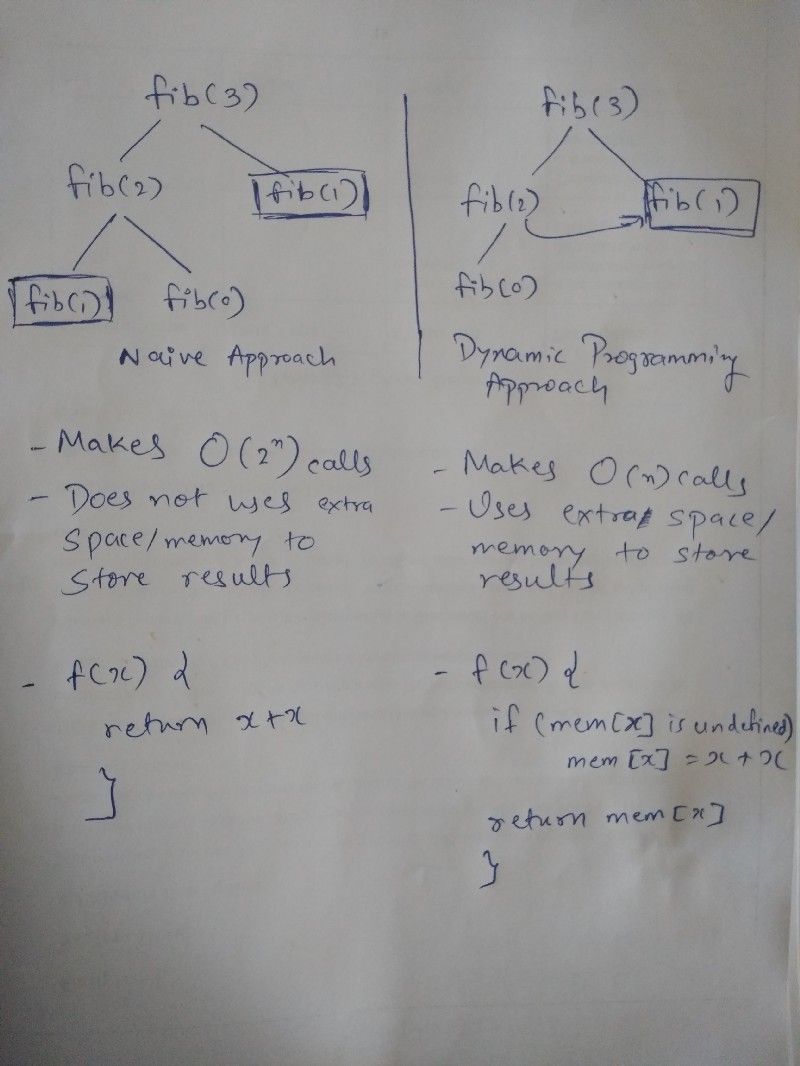 fib(3)
fib(2)
fib(1)
fib(1)
fib(0)
Naive Approach
- Makes O(2ⁿ) calls
- Does not uses extra
space/memory to
store results
- f(x) {
return x+x
}
fib(3)
fib(2)
fib(1)
fib(0)
Dynamic Programming
Approach
- Makes O(n) calls
- Uses extra space/
memory to store
results
- f(x) {
if (mem[x] is undefined)
mem[x] = x + x
return mem[x]
}